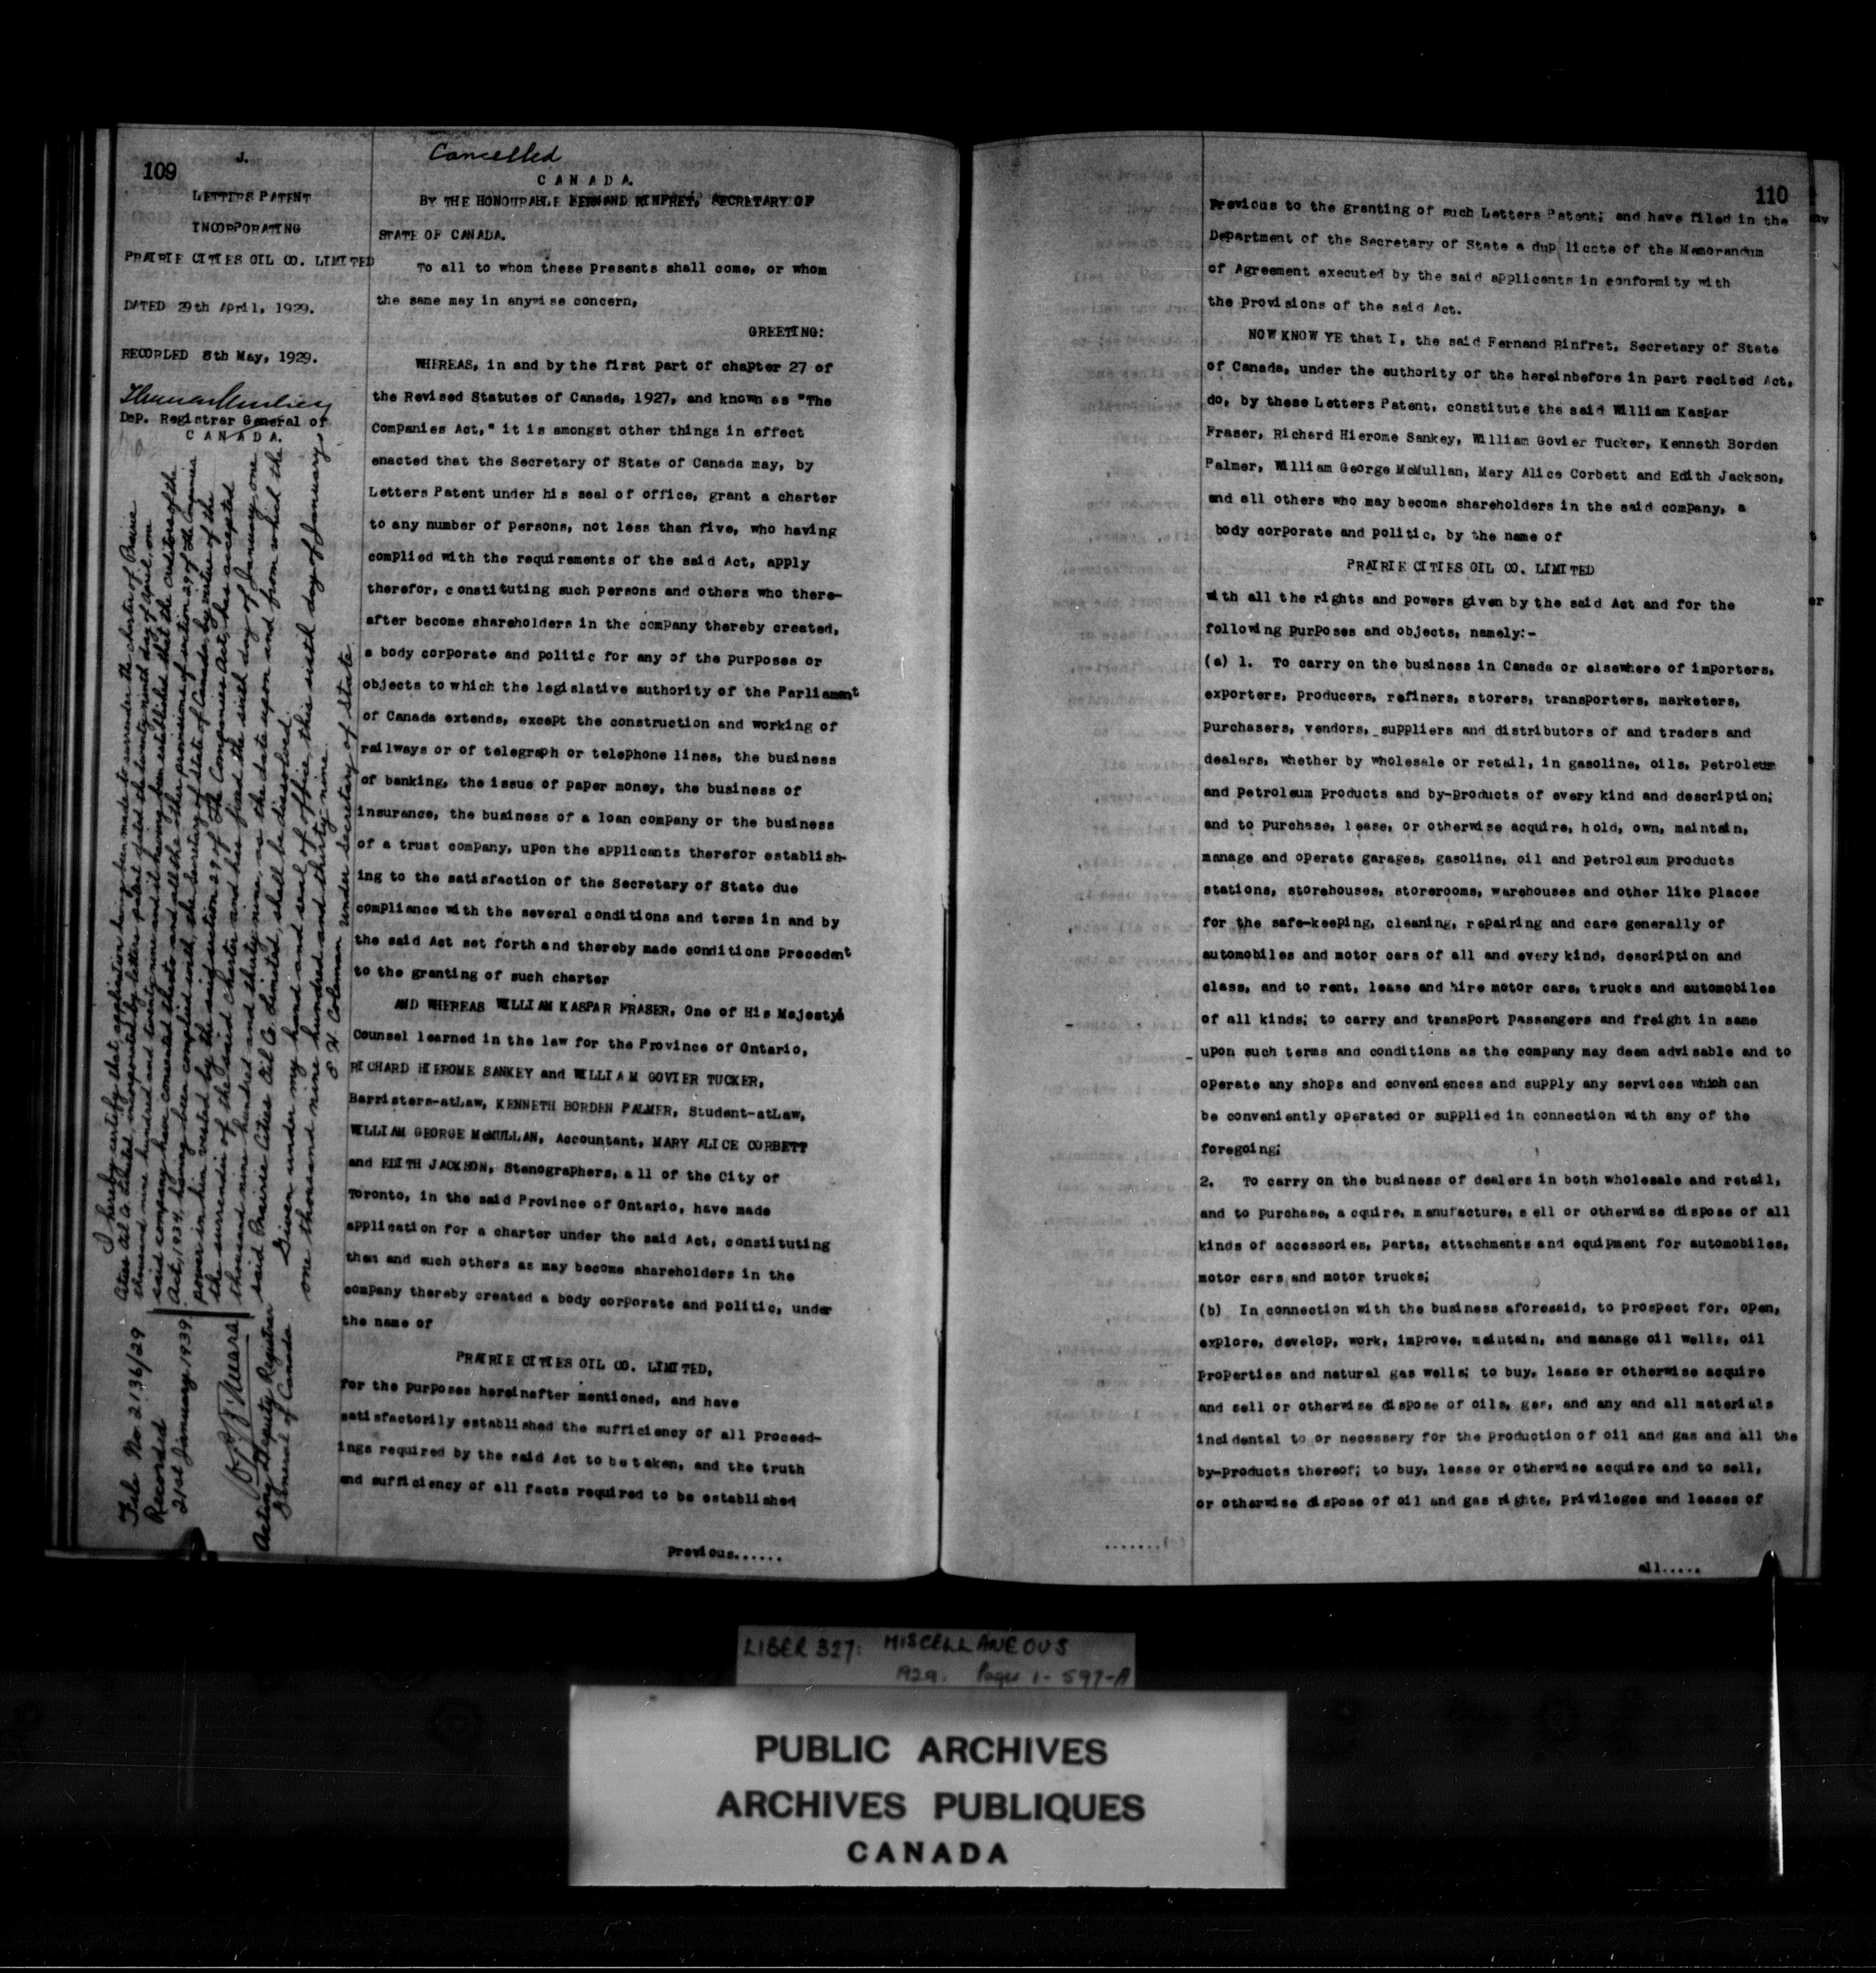 109
J.
LETTERS PATENT
INCORPORATING
PRAIRIE CITIES OIL CO. LIMITED
DATED 29th April, 1929.
RECORDED 8th May, 1929.
Dep. Registrar General of
CANADA.
I hereby certify that application having been made to surrender the charter of Prairie
Cities Oil Co. Limited, incorporated by letters patent dated the twenty-ninth day of April, one
thousand nine hundred and twenty-nine and it having been established that the creditors of the
said company have consented thereto and all the other provisions of section 29 of the Companies
Act, 1934, having been complied with, the Secretary of State of Canada, by virtue of the
power in him vested by the said section 29 of The Companies Act, has accepted
the surrender of the said charter and has fixed the sixth day of January, one
thousand nine hundred and thirty nine, as the date upon and from which the
said Prairie Cities Oil Co. Limited, shall be dissolved.
Given under my hand and seal of office, this sixth day of January
one thousand nine hundred and thirty nine.
E. H. Coleman Under Secretary of State
File No. 2136/29
Recorded
21st January 1939
Acting Deputy Registrar
General of Canada
Cancelled
CANADA.
BY THE HONOURABLE FERNAND RINFRET, SECRETARY OF
STATE OF CANADA.
To all to whom these Presents shall come, or whom
the same may in anywise concern,
GREETING:
WHEREAS, in and by the first part of chapter 27 of
the Revised Statutes of Canada, 1927, and known as "The
Companies Act," it is amongst other things in effect
enacted that the Secretary of State of Canada may, by
Letters Patent under his seal of office, grant a charter
to any number of persons, not less than five, who having
complied with the requirements of the said Act, apply
therefor, constituting such persons and others who there-
after become shareholders in the company thereby created,
a body corporate and politic for any of the purposes or
objects to which the legislative authority of the Parliament
of Canada extends, except the construction and working of
railways or of telegraph or telephone lines, the business
of banking, the issue of paper money, the business of
insurance, the business of a loan company or the business
of a trust company, upon the applicants therefor establish-
ing to the satisfaction of the Secretary of State due
compliance with the several conditions and terms in and by
the said Act set forth and thereby made conditions precedent
to the granting of such charter
AND WHEREAS WILLIAM KASPAR FRASER, One of His Majesty's
Counsel learned in the law for the Province of Ontario,
RICHARD HIEROME SANKEY and WILLIAM GOVIER TUCKER,
Barristers-atLaw, KENNETH BORDEN PALMER, Student-atLaw,
WILLIAM GEORGE McMULLAN, Accountant, MARY ALICE CORBETT
and EDITH JACKSON, Stenographers, all of the City of
Toronto, in the said Province of Ontario, have made
application for a charter under the said Act, constituting
them and such others as may become shareholders in the
company thereby created a body corporate and politic, under
the name of
PRAIRIE CITIES OIL CO. LIMITED,
for the purposes hereinafter mentioned, and have
satisfactorily established the sufficiency of all proceed-
ings required by the said Act to be taken, and the truth
and sufficiency of all facts required to be established
Previous......
110
Previous to the granting of such Letters Patent; and have filed in the
Department of the Secretary of State a duplicate of the Memorandum
of Agreement executed by the said applicants in conformity with
the Provisions of the said Act.
NOW KNOW YE that I, the said Fernand Rinfret, Secretary of State
of Canada, under the authority of the hereinbefore in part recited Act,
do, by these Letters Patent, constitute the said William Kaspar
Fraser, Richard Hierome Sankey, William Govier Tucker, Kenneth Borden
Palmer, William George McMullan, Mary Alice Corbett and Edith Jackson,
and all others who may become shareholders in the said company, a
body corporate and politic, by the name of
PRAIRIE CITIES OIL CO. LIMITED
with all the rights and powers given by the said Act and for the
following purposes and objects, namely:-
(a) 1. To carry on the business in Canada or elsewhere of importers,
exporters, producers, refiners, storers, transporters, marketers,
purchasers, vendors, suppliers and distributors of and traders and
dealers, whether by wholesale or retail, in gasoline, oils, petroleum
and petroleum products and by-products of every kind and description;
and to purchase, lease, or otherwise acquire, hold, own, maintain,
manage and operate garages, gasoline, oil and petroleum products
stations, storehouses, storerooms, warehouses and other like places
for the safe-keeping, cleaning, repairing and care generally of
automobiles and motor cars of all and every kind, description and
class, and to rent, lease and hire motor cars, trucks and automobiles
of all kinds; to carry and transport passengers and freight in same
upon such terms and conditions as the company may deem advisable and to
operate any shops and conveniences and supply any services which can
be conveniently operated or supplied in connection with any of the
foregoing;
2. To carry on the business of dealers in both wholesale and retail,
and to purchase, acquire, manufacture, sell or otherwise dispose of all
kinds of accessories, parts, attachments and equipment for automobiles,
motor cars and motor trucks;
(b) In connection with the business aforesaid, to prospect for, open,
explore, develop, work, improve, maintain, and manage oil wells, oil
properties and natural gas wells; to buy, lease or otherwise acquire
and sell or otherwise dispose of oils, gas, and any and all materials
incidental to or necessary for the production of oil and gas and all the
by-products thereof; to buy, lease or otherwise acquire and to sell,
or otherwise dispose of oil and gas rights, privileges and leases of
all.....
LIBER 327: MISCELLANEOUS
1929. Pages 1-597-A
PUBLIC ARCHIVES
ARCHIVES PUBLIQUES
CANADA